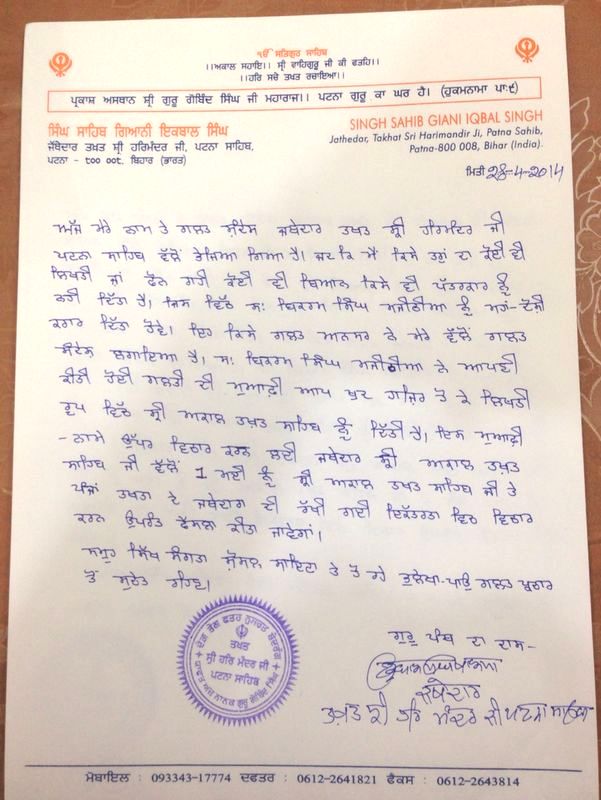 ੴ ਸਤਿਗੁਰ ਸਾਹਿਬ
।।ਅਕਾਲ ਸਹਾਇ।। ਸ੍ਰੀ ਵਾਹਿਗੁਰੂ ਜੀ ਕੀ ਫਤਹਿ।।
।।ਹਰਿ ਸਚੇ ਤਖਤ ਰਚਾਇਆ।।
ਪ੍ਰਕਾਸ਼ ਅਸਥਾਨ ਸ੍ਰੀ ਗੁਰੂ ਗੋਬਿੰਦ ਸਿੰਘ ਜੀ ਮਹਾਰਾਜ। ਪਟਨਾ ਗੁਰੂ ਕਾ ਘਰ ਹੈ। (ਹੁਕਮਨਾਮਾ ਪਾ:੯)
ਸਿੰਘ ਸਾਹਿਬ ਗਿਆਨੀ ਇਕਬਾਲ ਸਿੰਘ
ਜੱਥੇਦਾਰ ਤਖਤ ਸ਼੍ਰੀ ਹਰਿਮੰਦਰ ਜੀ, ਪਟਨਾ ਸਾਹਿਬ,
ਪਟਨਾ - ੮੦੦ ੦੦੮. ਬਿਹਾਰ (ਭਾਰਤ)
SINGH SAHIB GIANI IQBAL SINGH
Jathedar, Takhat Sri Harimandir Ji, Patna Sahib,
Patna-800 008, Bihar (India).
ਮਿਤੀ 28-4-2014
ਅੱਜ ਮੇਰੇ ਨਾਮ ਤੇ ਗਲਤ ਸੰਦੇਸ਼ ਜਥੇਦਾਰ ਤਖਤ ਸ੍ਰੀ ਹਰਿਮੰਦਰ ਜੀ
ਪਟਨਾ ਸਾਹਿਬ ਵੱਲੋਂ ਭੇਜਿਆ ਗਿਆ ਹੈ। ਜਦ ਕਿ ਮੈਂ ਕਿਸੇ ਤਰ੍ਹਾਂ ਦਾ ਕੋਈ ਵੀ
ਲਿਖਤੀ ਜਾਂ ਫੋਨ ਰਾਹੀਂ ਕੋਈ ਵੀ ਬਿਆਨ ਕਿਸੇ ਵੀ ਪੱਤਰਕਾਰ ਨੂੰ
ਨਹੀਂ ਦਿੱਤਾ ਹੈ। ਜਿਸ ਵਿੱਚ ਸ: ਬਿਕਰਮ ਸਿੰਘ ਮਜੀਠੀਆ ਨੂੰ ਮਹਾਂ-ਦੋਸ਼ੀ
ਕਰਾਰ ਦਿੱਤਾ ਹੋਵੇ। ਇਹ ਕਿਸੇ ਗਲਤ ਅਨਸਰ ਨੇ ਮੇਰੇ ਵੱਲੋਂ ਗਲਤ
ਸੰਦੇਸ਼ ਲਗਾਇਆ ਹੈ। ਸ: ਬਿਕਰਮ ਸਿੰਘ ਮਜੀਠੀਆ ਨੇ ਆਪਣੀ
ਕੀਤੀ ਹੋਈ ਗਲਤੀ ਦੀ ਮੁਆਫ਼ੀ ਆਪ ਖੁਦ ਹਾਜ਼ਿਰ ਹੋ ਕੇ ਲਿਖਤੀ
ਰੂਪ ਵਿੱਚ ਸ੍ਰੀ ਅਕਾਲ ਤਖ਼ਤ ਸਾਹਿਬ ਨੂੰ ਦਿੱਤੀ ਹੈ, ਇਸ ਮੁਆਫ਼ੀ
-ਨਾਮੇ ਉੱਪਰ ਵਿਚਾਰ ਕਰਨ ਲਈ ਜਥੇਦਾਰ ਸ੍ਰੀ ਅਕਾਲ ਤਖ਼ਤ
ਸਾਹਿਬ ਜੀ ਵੱਲੋਂ 1 ਮਈ ਨੂੰ ਸ੍ਰੀ ਅਕਾਲ ਤਖਤ ਸਾਹਿਬ ਜੀ ਤੇ
ਪੰਜਾਂ ਤਖਤਾਂ ਦੇ ਜਥੇਦਾਰਾਂ ਦੀ ਰੱਖੀ ਗਈ ਇਕੱਤਰਤਾ ਵਿਚ ਵਿਚਾਰ
ਕਰਨ ਉਪਰੰਤ ਫੈਸਲਾ ਕੀਤਾ ਜਾਵੇਗਾ।
ਸਮੂਹ ਸਿੱਖ ਸੰਗਤਾਂ ਸੋਸ਼ਲ ਸਾਇਟਾਂ ਤੇ ਹੋ ਰਹੇ ਭੁਲੇਖਾ-ਪਾਊ ਗਲਤ ਪ੍ਰਚਾਰ
ਤੋਂ ਸੁਚੇਤ ਰਹਿਣ।
ਤਖਤ
ਸ੍ਰੀ ਹਰਿ ਮੰਦਰ ਜੀ
ਪਟਨਾ ਸਾਹਿਬ
ਦੇਗ ਤੇਗ ਫਤਹ ਨੁਸਰਤ ਬੇਦਰੰਗ
ਯਾਫਤ ਅਜ਼ ਨਾਨਕ ਗੁਰੂ ਗੋਬਿੰਦ ਸਿੰਘ
ਗੁਰੂ ਪੰਥ ਦਾ ਦਾਸ-
ਜਥੇਦਾਰ
ਤਖ਼ਤ ਸ੍ਰੀ ਹਰਿ ਮੰਦਰ ਜੀ ਪਟਨਾ ਸਾਹਿਬ
ਮੋਬਾਇਲ : 093343-17774 ਦਫਤਰ : 0612-2641821 ਫੈਕਸ : 0612-2643814